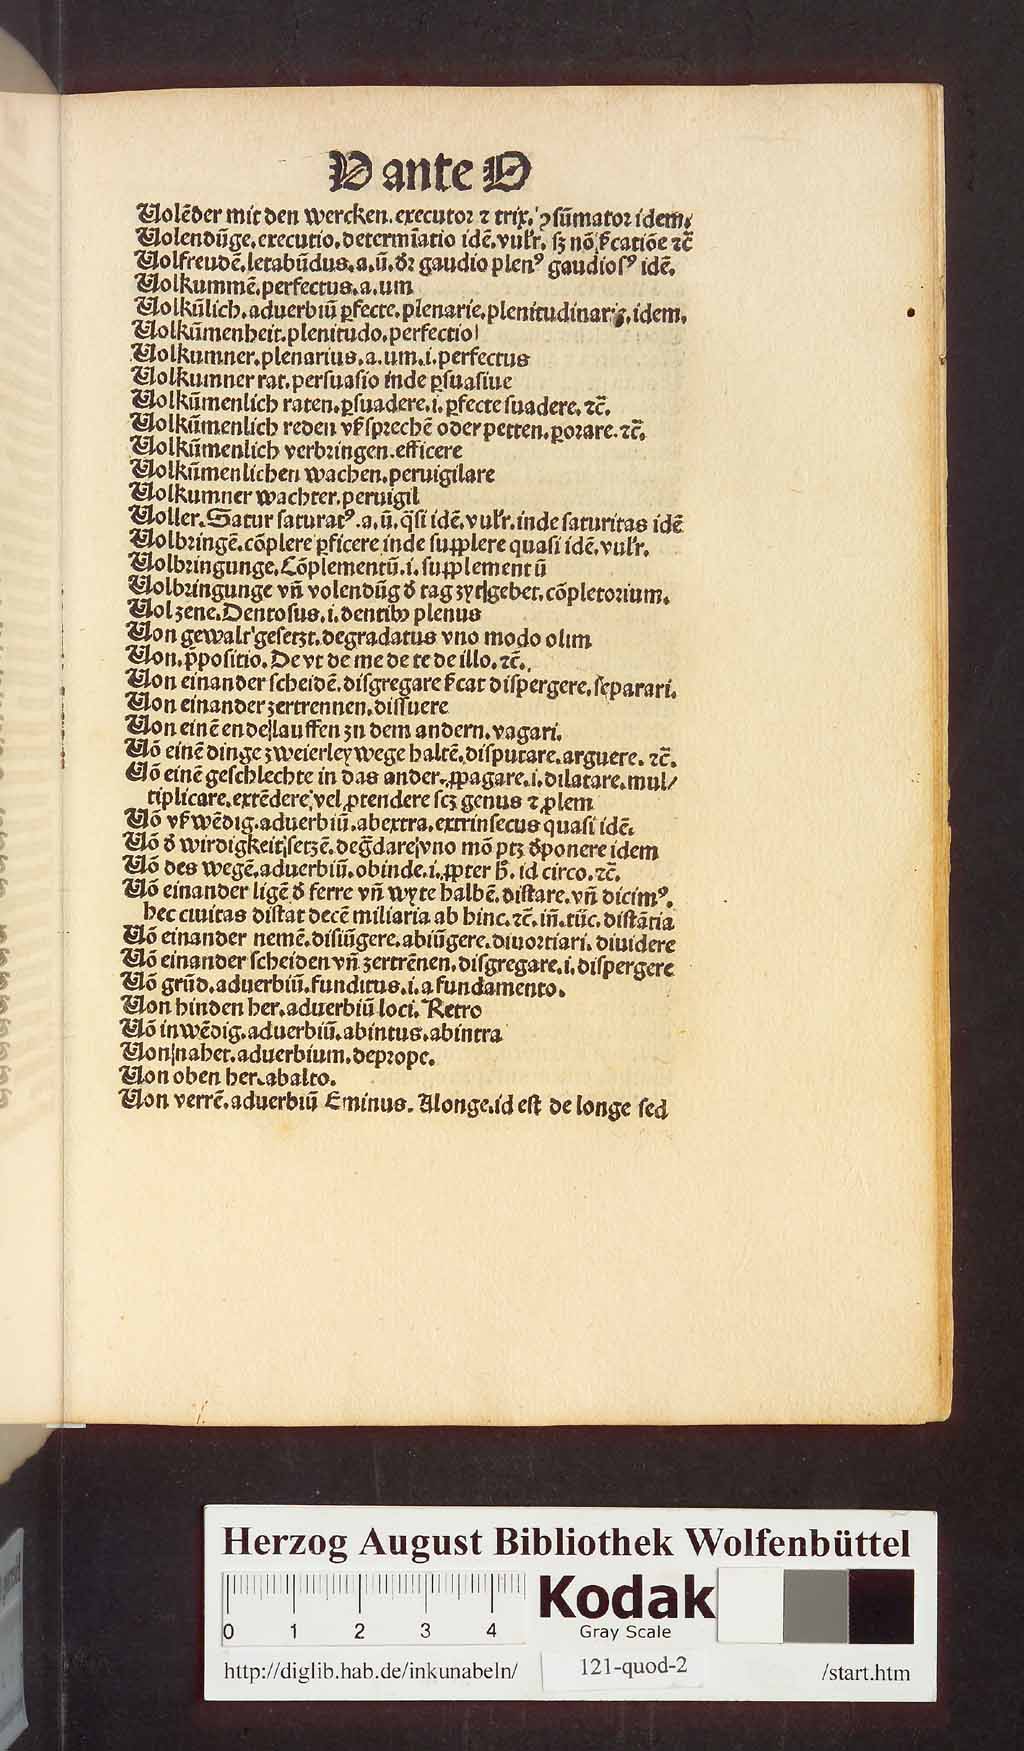 V ante O
Volēder mit den wercken. executor ⁊ trix. ꝯsūmator idem.
Volendūge. executio. determīatio idē. vulr. sꝫ nō catiōe ⁊c̄
Volfreudē. letabūdus. a. ū. dr gaudio plenꝰ gaudiosꝰ idē.
Volkummē. perfectus. a. um
Volkūlich. aduerbiū ꝑfecte. plenarie. plenitudinariꝫ. idem.
Volkūmenheit. plenitudo. perfectio
Volkumner. plenarius. a. um. i. perfectus
Volkumner rat. persuasio inde ꝑsuasiue
Volkūmenlich raten. ꝑsuadere. i. ꝑfecte suadere. ⁊c̄.
Volkūmenlich reden vſz sprechē oder petten. ꝑorare. ⁊c̄.
Volkūmenlich verbringen. efficere
Volkūmenlichen wachen. peruigilare
Volkumner wachter. peruigil
Voller. Satur saturatꝰ. a. ū. q̄si idē. vulr. inde saturitas idē
Volbringē. cōplere ꝑficere inde supplere quasi idē. vulr.
Volbringunge. Cōplementū. i. supplementū
Volbringunge vn̄ volendūg d̓ tag zytgebet. cōpletorium.
Vol zene. Dentosus. i. dentibꝫ plenus
Von gewalt gesetzt. degradatus vno modo olim
Von. p̄positio. De vt de me de te de illo. ⁊c̄.
Von einander scheidē. disgregare cat dispergere. separari.
Von einander zertrennen. dissuere
Von einē ende lauffen zu dem andern. vagari.
Vō einē dinge zweierley wege haltē. disputare. arguere. ⁊c̄.
Vō einē geschlechte in das ander. ꝓpagare. i. dilatare. mul/
tiplicare. extēdere vel ꝓtendere scꝫ genus ⁊ ꝓlem
Vō vſz wēdig. aduerbiū. abextra. extrinsecus quasi idē.
Vō d̓ wirdigkeit setzē. deg̃dare vno mō ptꝫ d̓ponere idem
Vō des wegē. aduerbiū. obinde. i. ꝓpter h̄. id circo. ⁊c̄.
Vō einander ligē d̓ ferre vn̄ wyte halbē. distare. vn̄ dicimꝰ.
hec ciuitas distat decē miliaria ab hinc. ⁊c̄. in̄. tūc. distātia
Vō einander nemē. disiūgere. abiūgere. diuortiari. diuidere
Vō einander scheiden vn̄ zertrēnen. disgregare. i. dispergere
Vō grūd. aduerbiū. funditus. i. a fundamento.
Von hinden her. aduerbiū loci. Retro
Vō inwēdig. aduerbiū. abintus. abintra
Von nahet. aduerbium. deprope.
Von oben her. abalto.
Von verrē. aduerbiū Eminus. Alonge. id est de longe sed
Herzog August Bibliothek Wolfenbüttel
0 1 2 3 4
Kodak
Gray Scale
http://diglib.hab.de/inkunabeln/ 121-quod-2 /start.htm